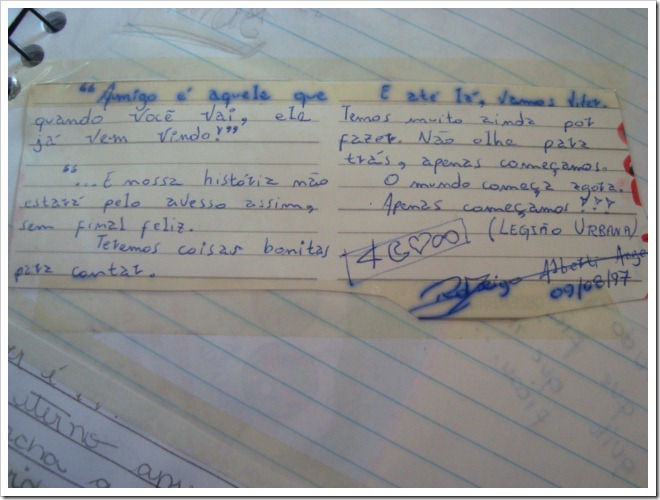 “Amigo é aquele que
quando você vai, ele
já vem vindo!”
“
...E nossa história não
estará pelo avesso assim,
sem final feliz.
Teremos coisas bonitas
para contar.
E até lá, vamos viver.
Temos muito ainda por
fazer. Não olhe para
trás, apenas começamos.
O mundo começa agora.
Apenas começamos!!!”
(LEGIÃO URBANA)
4
Rodrigo Alberti
09/08/97
é ...